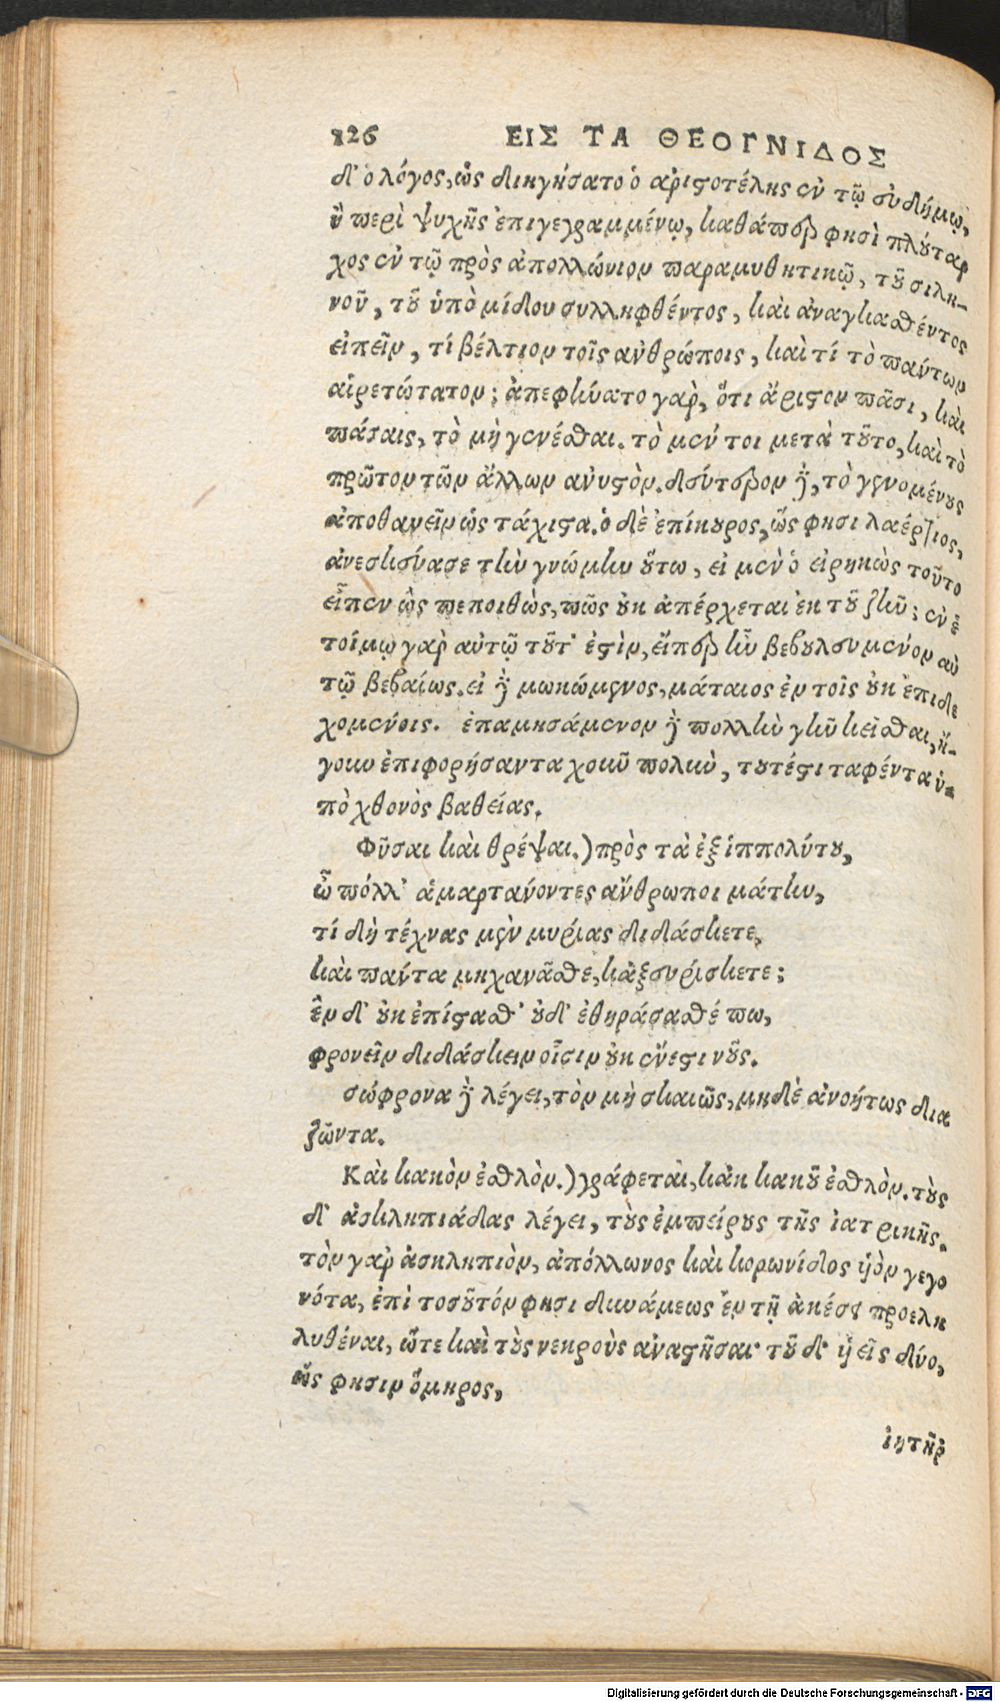 126 ΕΙΣ ΤΑ ΘΕΟΓΝΙΔΟΣ
δ' ὁ λόγος, ὡς διηγήσατο ὁ ἀριστοτέλης ἐν τῷ εὐδήμῳ,
ἢ περὶ ψυχῆς ἐπιγεγραμμένῳ, καθάπερ φησὶ πλούταρ
χος ἐν τῷ πρὸς ἀπολλώνιον παραμυθητικῷ, τοῦ σιλη-
νοῦ, τοῦ ὑπὸ μίδου συλληφθέντος, καὶ ἀναγκασθέντος
εἰπεῖν, τί βέλτιον τοῖς ἀνθρώποις, καὶ τί τὸ πάντων
αἱρετώτατον; ἀπεφκύατο γὰρ, ὅτι ἄριστον πᾶσι, καὶ
πάσαις, τὸ μὴ γενέσθαι. τὸ μέν τοι μετὰ τοῦτο, καὶ τὸ
πρῶτον τῶν ἄλλων ἀνυστὸν. δεύτερον δὲ, τὸ γενομένους
ἀποθανεῖν ὡς τάχιστα. ὁ δὲ ἐπίκουρος, ὥς φησι λαέρτιος,
ἀνεσκεύασε τὴν γνώμην οὕτω, εἰ μὲν ὁ εἰρηκὼς τοῦτο
εἶπεν ὡς πεποιθὼς, πῶς οὐκ ἀπέρχεται ἐκ τοῦ ζῆν; ἐν ἑ
τοίμῳ γὰρ αὐτῷ τοῦτ' ἐστὶν, εἴπερ ἦν βεβουλευμένον αὐ
τῷ βεβαίως. εἰ δὲ μωκώμενος, μάταιος ἐν τοῖς οὐκ ἐπιδε
χομένοις. ἐπαμησάμενον δὲ πολλὴν γῆν κεῖσθαι, ἤ-
γουν ἐπιφορήσαντα χοῦν πολὺν, τουτέστι ταφέντα ὑ-
πὸ χθονὸς βαθείας.
Φῦσαι καὶ θρέψαι.) πρὸς τὰ ἐξ ἱππολύτου,
ὦ πόλλ' ἁμαρτάνοντες ἄνθρωποι μάτην,
τί δὴ τέχνας μὲν μυρίας διδάσκετε,
καὶ πάντα μηχανᾶσθε, κἀξευρίσκετε;
ἓν δ' οὐκ ἐπίστασθ' οὐδ' ἐθηράσασθέ πω,
φρονεῖν διδάσκειν οἷσιν οὐκ ἔνεστι νοῦς.
σώφρονα δὲ λέγει, τὸν μὴ σκαιῶς, μηδὲ ἀνοήτως δια
ζῶντα.
Καὶ κακὸν ἐσθλὸν.) γράφεται, κἀκ κακοῦ ἐσθλὸν. τοὺς
δ' ἀσκληπιάδας λέγει, τοὺς ἐμπείρους τῆς ἰατρικῆς.
τὸν γὰρ ἀσκληπιὸν, ἀπόλλωνος καὶ κορωνίδος υἱὸν γεγο
νότα, ἐπὶ τοσοῦτόν φησι δυνάμεως ἐν τῇ ἀκέσει προελη
λυθέναι, ὥστε καὶ τοὺς νεκροὺς ἀναστῆσαι· τοῦ δ' υἱεῖς δύο,
ὥς φησιν ὅμηρος,
ἰητῆρ